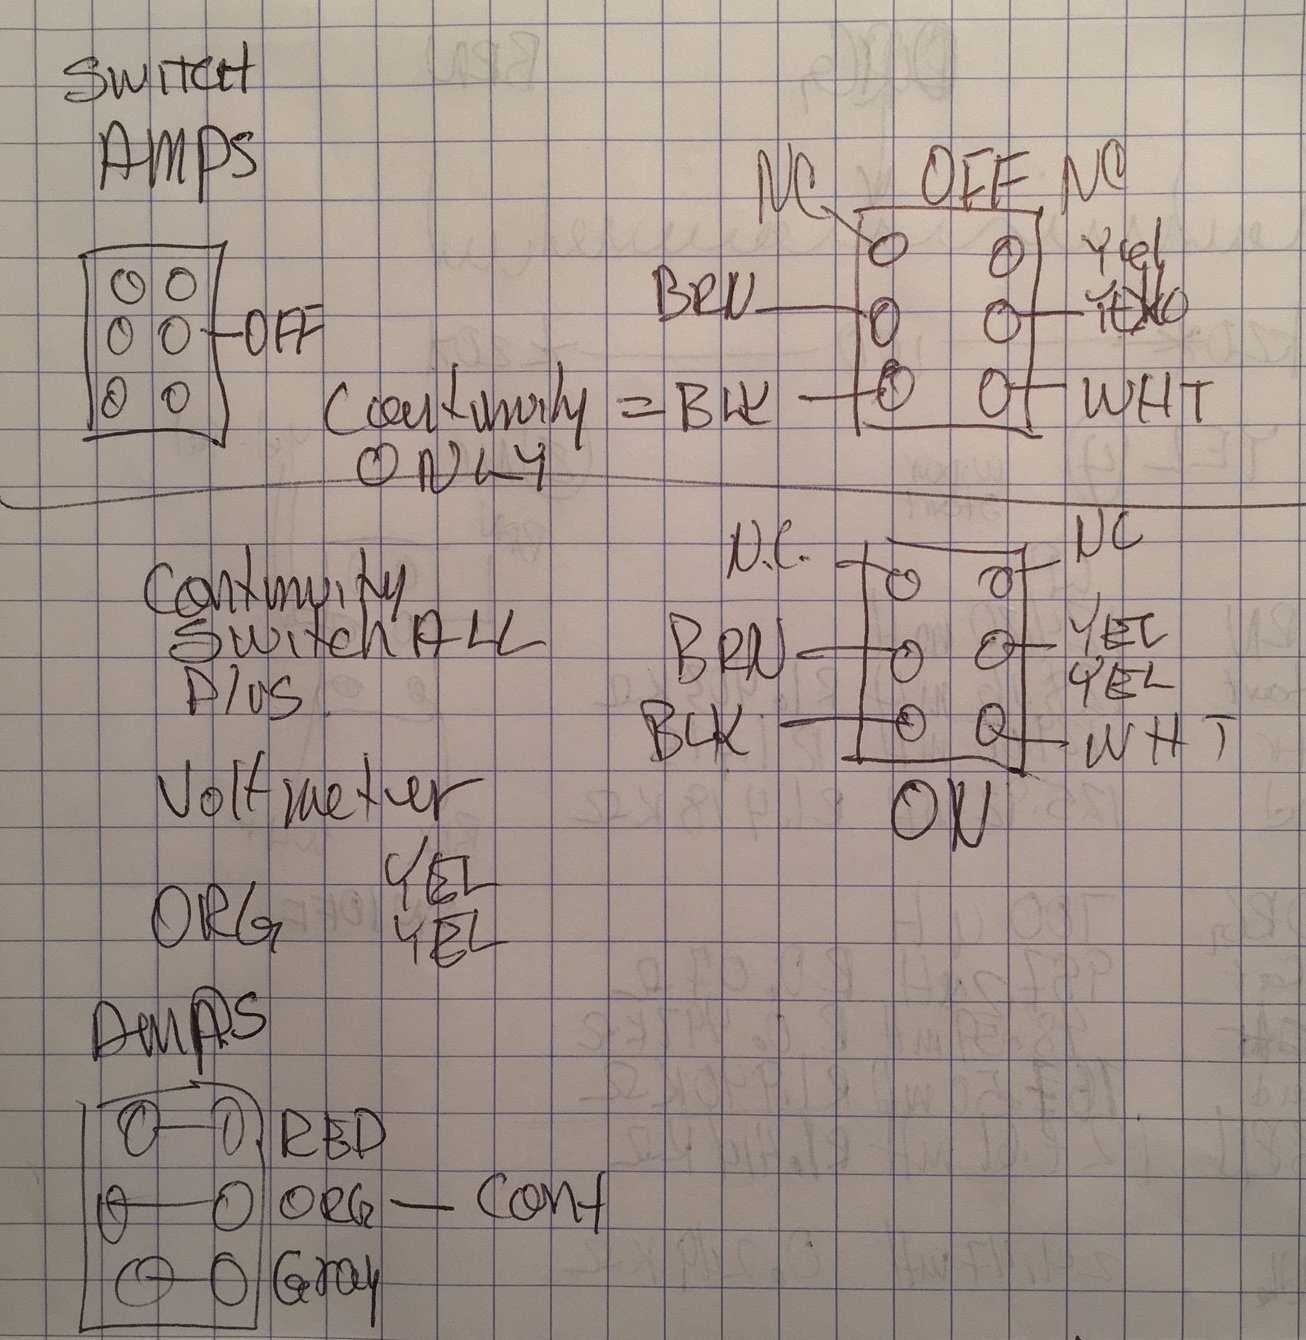 SWITCH
AMPS
OFF
NC OFF NC
BRN Yel
BLK WHT
Continuity =
ONLY
N.C. NC
BRN YEL
YEL
BLK WHT
ON
Continuity
Switch ALL
Plus
Voltmeter
YEL
ORG YEL
AMPS
RED
ORG — Cont
Gray